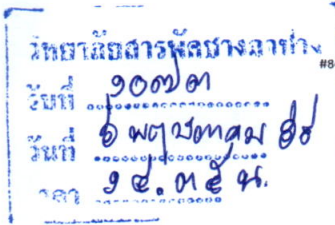 วิทยาลัยสารพัดช่างลำปาง
#8
รับที่ ๑๐๗๓
วันที่ ๖ พฤษภาคม ๕๕
เวลา ๑๔.๓๕ น.